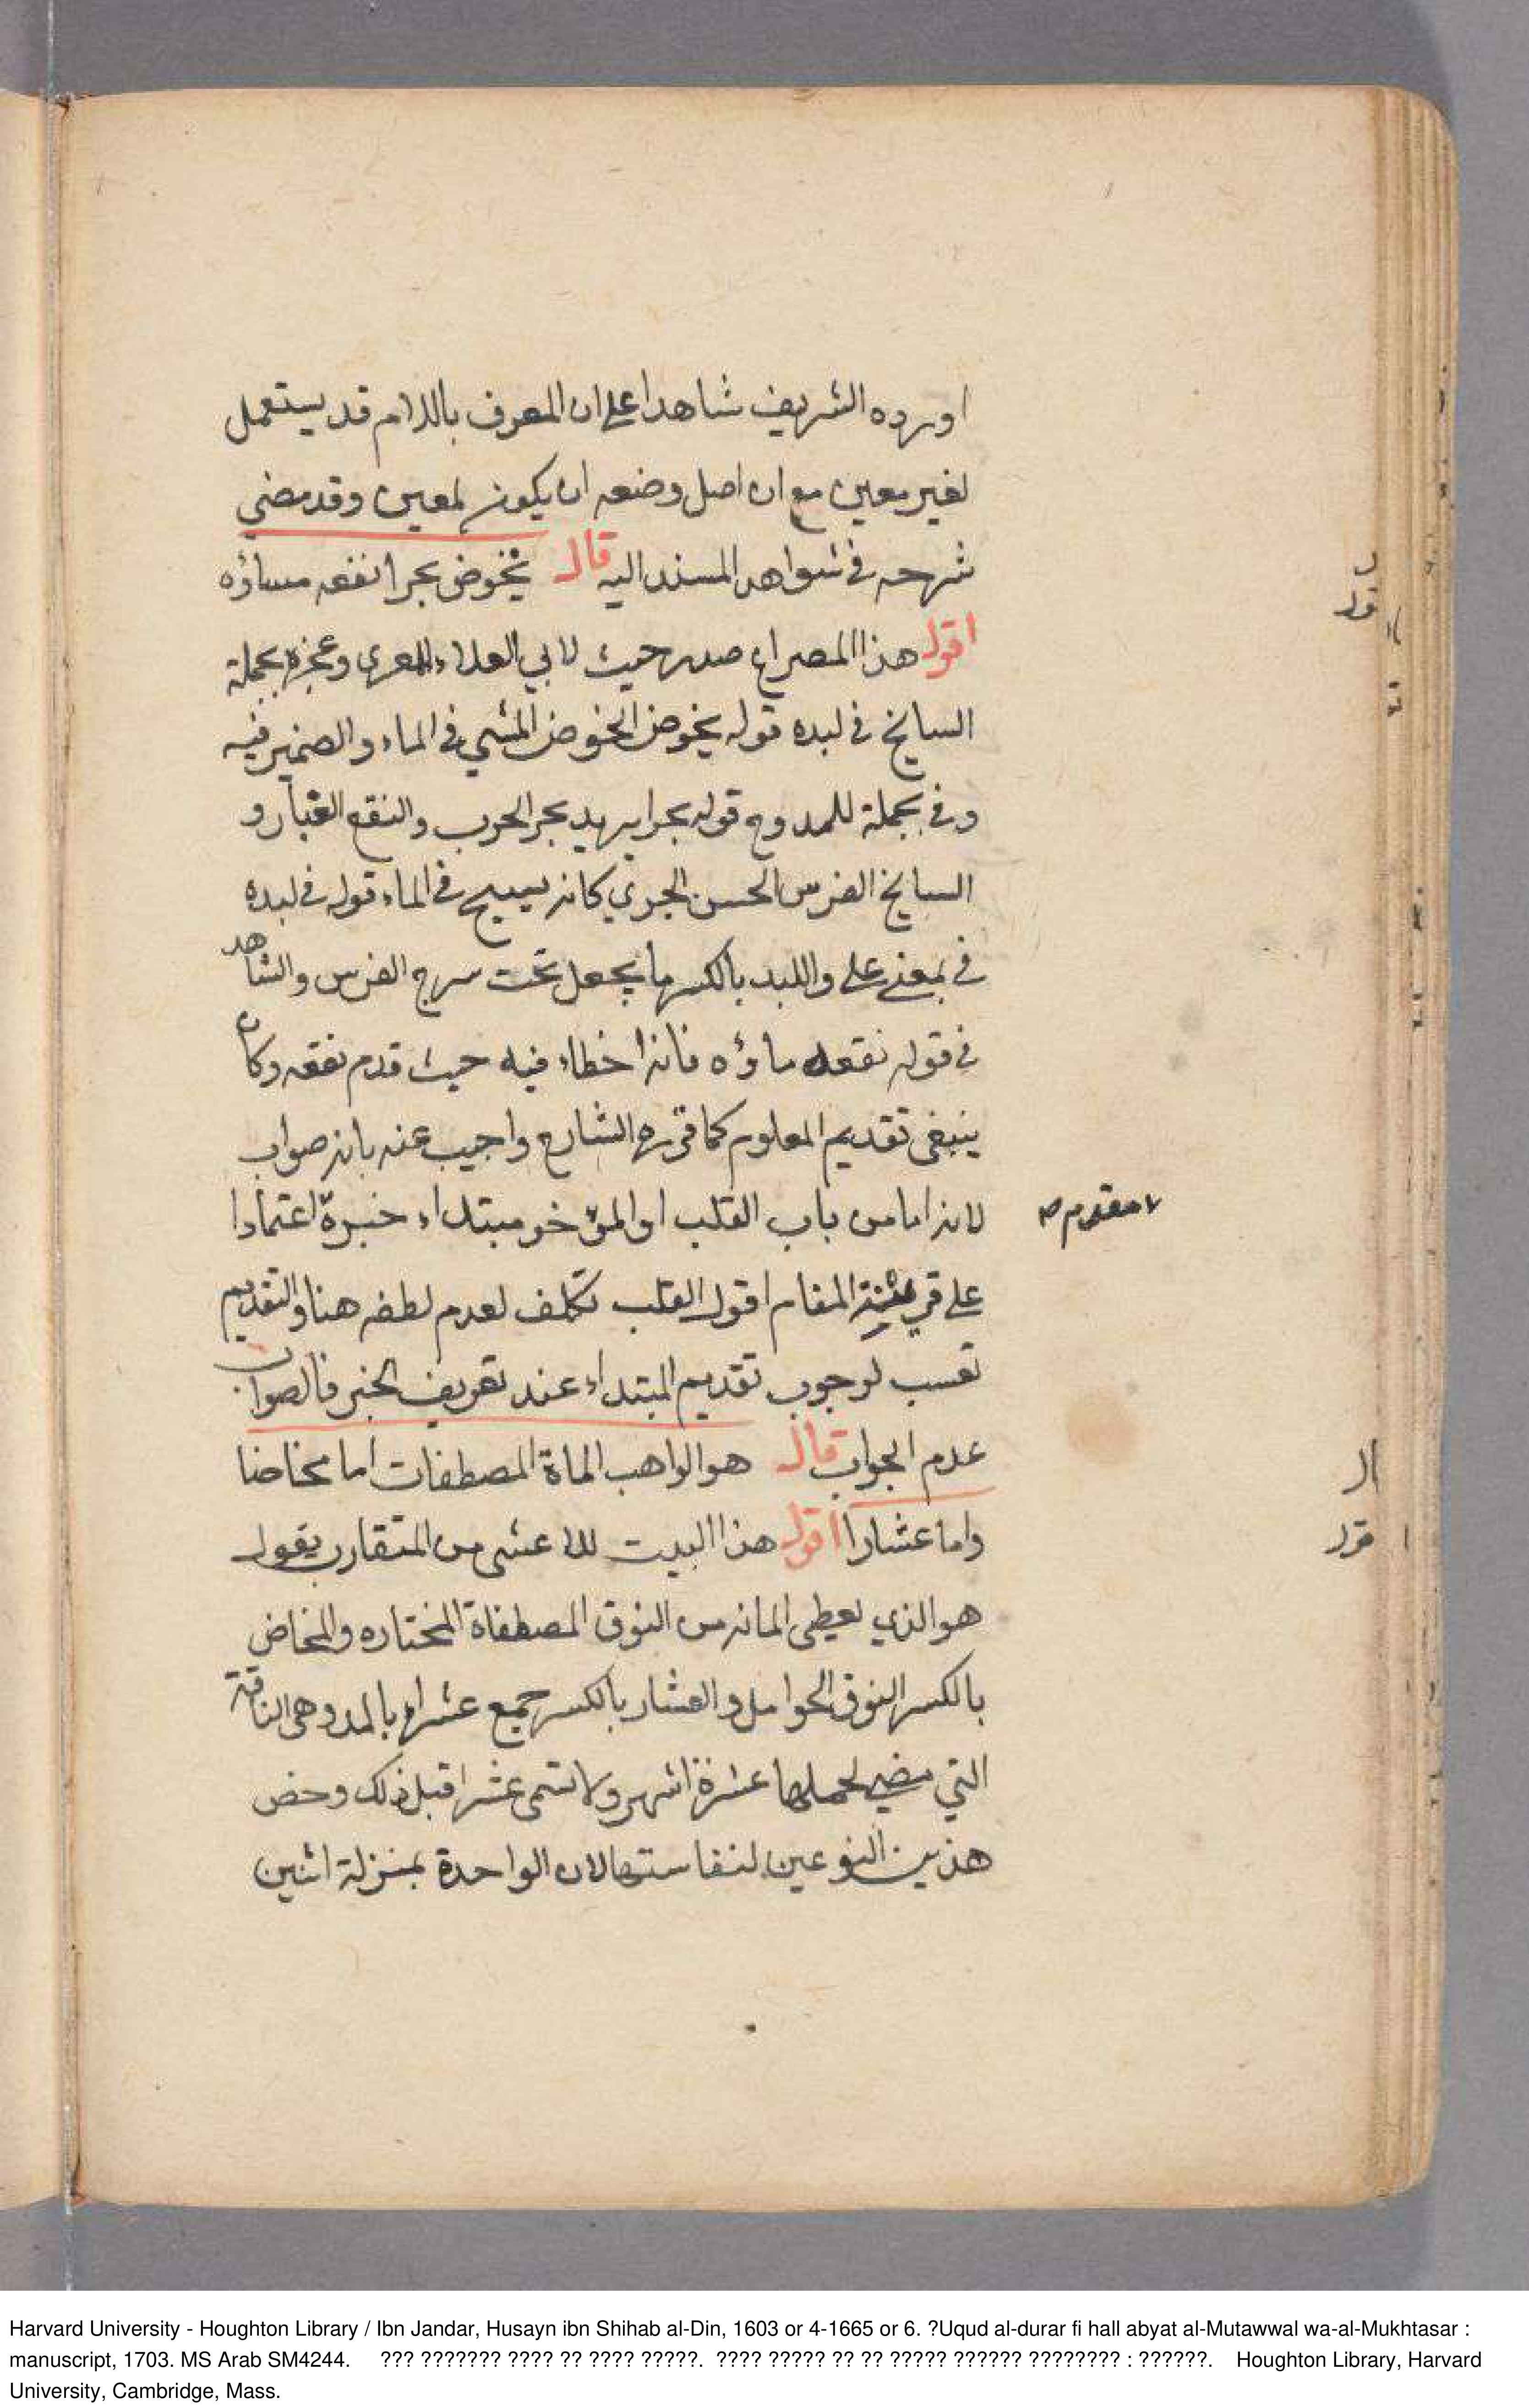 اورده الشريف شاهدا على ان المعرف باللام قد يستعمل
لغير معين مع ان اصل وضعه ان يكون لمعين وقد مضي
شرحه في شواهد المسند اليه قال يخوض بحرا نقعه مساؤه
اقول هذا المصراع صدر حيث لابي العلاء المعري وعجزه بجملة
السابخ في لبده قوله يخوض الخوض المشي في الماء والضمير فيه
وفي بجملة للممدوح قوله بحرا يريد بحر الحرب والنقع الغبار و
السابخ الفرس الحسن الجري كانه يسبح في الماء قوله في لبده
في بمعني على واللبد بالكسر ما يجعل تحت سرج الفرس والشاهد
في قوله نقعه ماؤه فانه اخطاء فيه حيث قدم نقعه وكان
ينبغي تقديم المعلوم كما قرره الشارح واجيب عنه بانه صواب
لانه اما من باب القلب او المؤخر مبتداء خبرة اعتمادا
مقدم
على قرينة المقام اقول القلب تكلف لعدم لطفه هنا والتقديم
تعسب لوجوب تقديم المبتداء عند تعريف الخبر فالصواب
عدم الجواب قال هو الواهب الماة المصطفات اما مخاضا
واما عشارا اقول هذا البيت للاعشى من المتقارب يقول
هو الذي يعطي المانه من النوق المصطفاة المختاره والمخاض
بالكسر النوق الحوامل والعشار بالكسر جمع عشراء بالمد وهي الناقة
التي مضي لحملها عشرة اشهر ولا تسمى عشرا قبل ذلك وخص
هذين النوعين لنفاستها لان الواحدة بمنزلة اثنين
قول
ال
قول
Harvard University - Houghton Library / Ibn Jandar, Husayn ibn Shihab al-Din, 1603 or 4-1665 or 6. ?Uqud al-durar fi hall abyat al-Mutawwal wa-al-Mukhtasar :
manuscript, 1703. MS Arab SM4244. ??? ??????? ???? ?? ???? ?????. ???? ????? ?? ?? ????? ?????? ???????? : ??????. Houghton Library, Harvard
University, Cambridge, Mass.